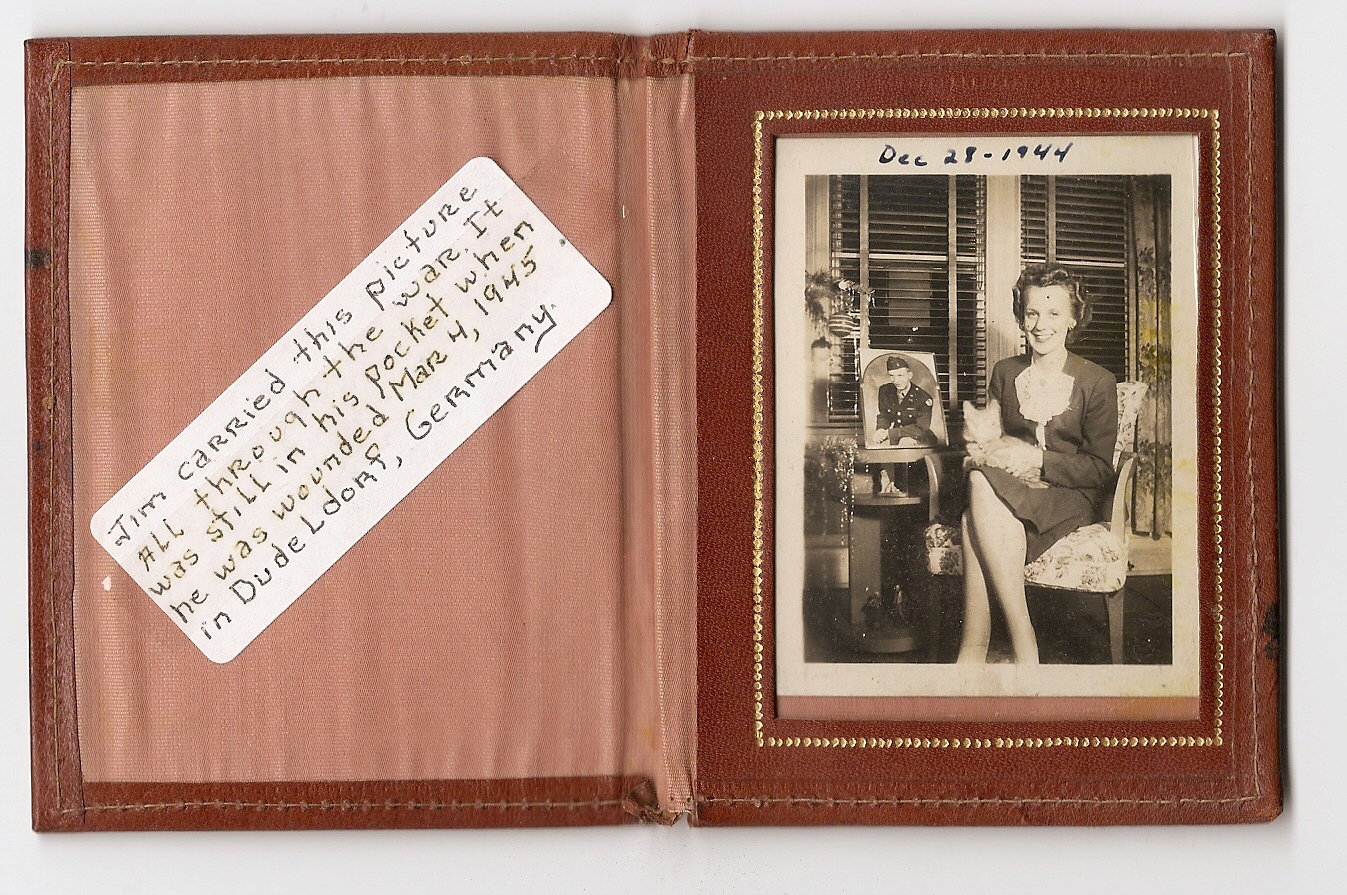 Jim carried this picture
All through the war. It
was still in his pocket when
he was wounded Mar 4, 1945
in Dudeldorf, Germany.
Dec 28-1944